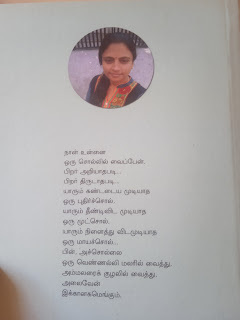 நான் உன்னை
ஒரு சொல்லில் வைப்பேன்.
பிறர் அறியாதபடி..
பிறர் திருடாதபடி...
யாரும் கண்டடைய முடியாத
ஒரு புதிர்ச்சொல்.
யாரும் தீண்டிவிட முடியாத
ஒரு முட்சொல்.
யாரும் நினைத்து விடமுடியாத
ஒரு மாயச்சொல்..
பின், அச்சொல்லை
ஒரு வெண்ணல்லி மலரில் வைத்து,
அம்மலரைக் குழலில் வைத்து,
அலைவேன்
இக்கானகமெங்கும்.